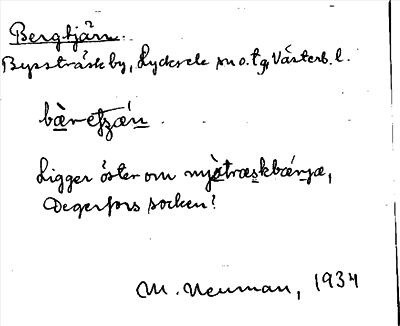 Bergtjärn.
Byssträsk by, Lycksele sn o. tg, Västerb. l.
Ligger öster om
Degerfors socken?
M. Neuman, 1934